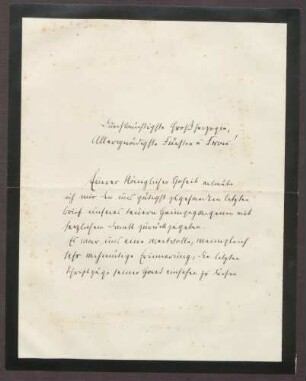 Durchlauchtigste Großherzogin,
Allergnädigste Fürstin u Frau!
Eurer Königlichen Hoheit erlaube
ich mir den uns gütigst zugesandten letzten
Brief unseres teuern Heimgegangenen mit
herzlichem Dank zurückzugeben.
Es war uns eine wertvolle, wenngleich
sehr wehmütige Erinnerung, die letzten
Schriftzüge seiner Hand einsehen zu dürfen